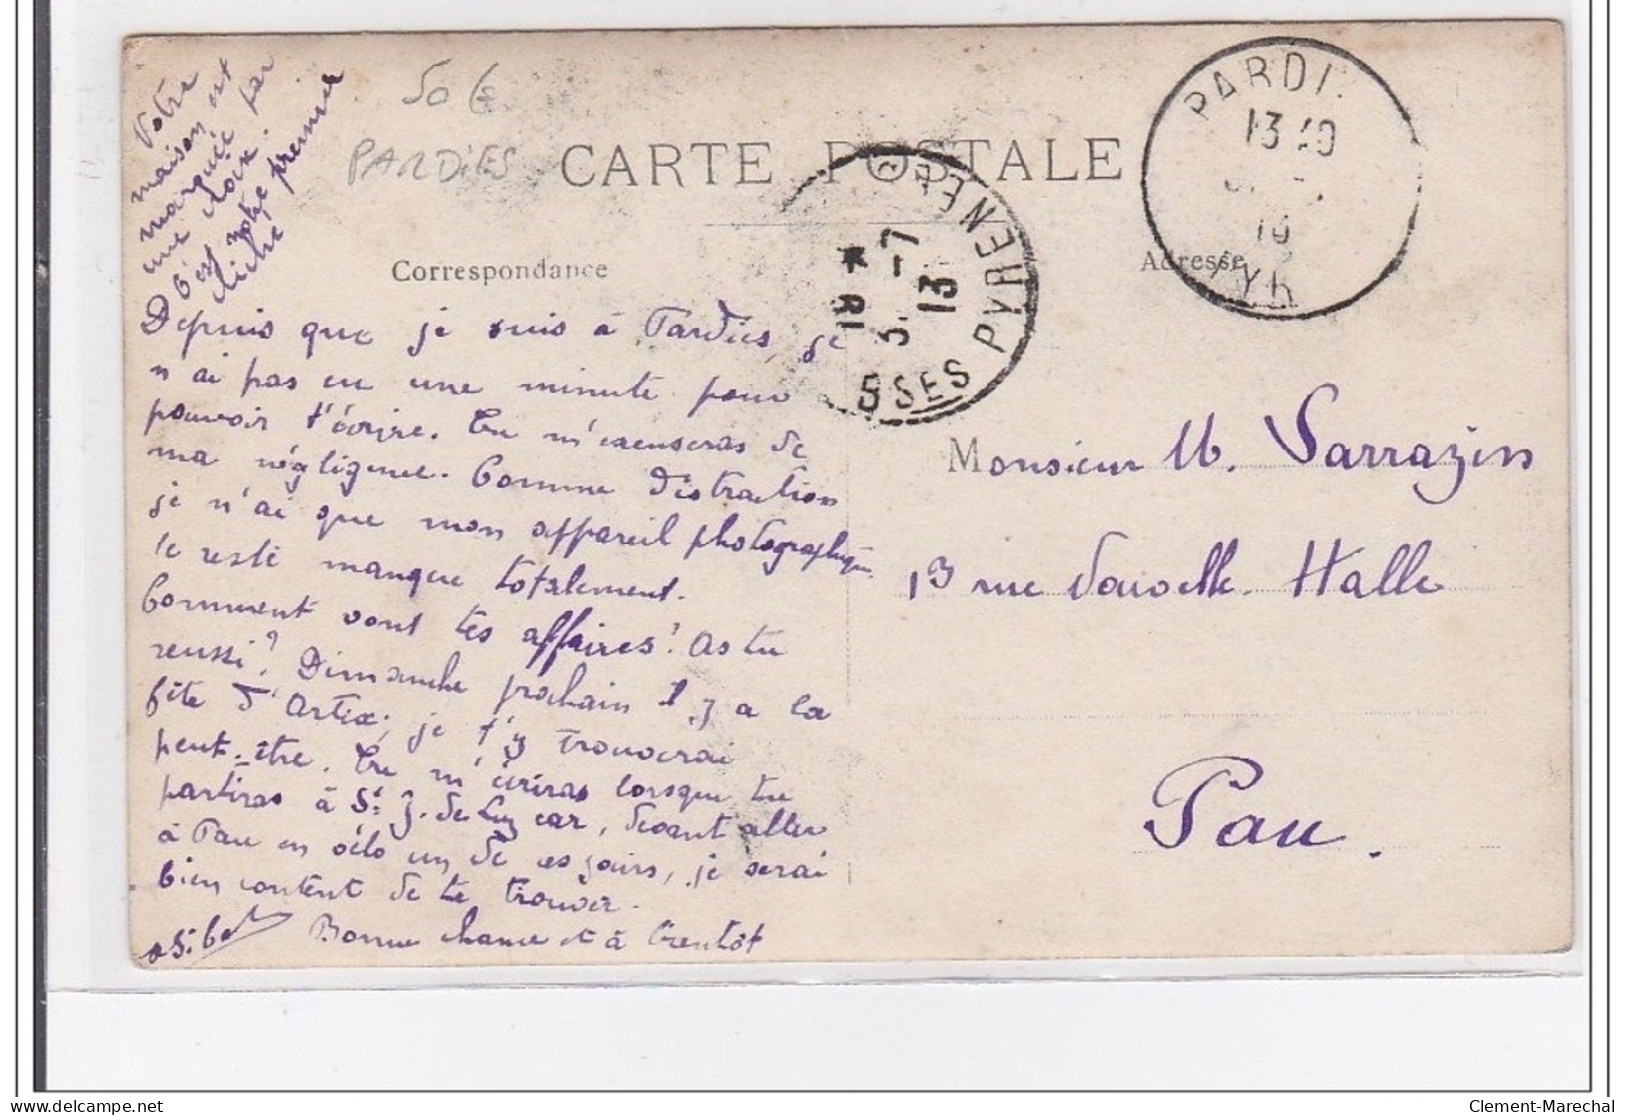 Votre
maison est
marquée par
une croix.
C'est notre premier
cliché
50 €
PARDIES
CARTE POSTALE
Correspondance
Adresse
PARDI
13 10
PYR
SES PYRENEES
7
13
5
Depuis que je suis à Pardies, je
n'ai pas eu une minute pour
pouvoir t'écrire. Tu m'excuseras de
ma négligence. Comme distraction
je n'ai que mon appareil photographique
le reste manque totalement.
Comment vont tes affaires? As tu
reussi? Dimanche prochain il y a la
fête d'Artix; je t'y trouverai
peut-être. Tu m'écriras lorsque tu
partiras à St. J. de Luz car, devant aller
à Pau en vélo un de ces jours, je serai
bien content de te trouver.
Bonne chance et à bientôt
Monsieur M. Sarrazin
13 rue Nouvelle Halle
Pau.
Clement-Marechal